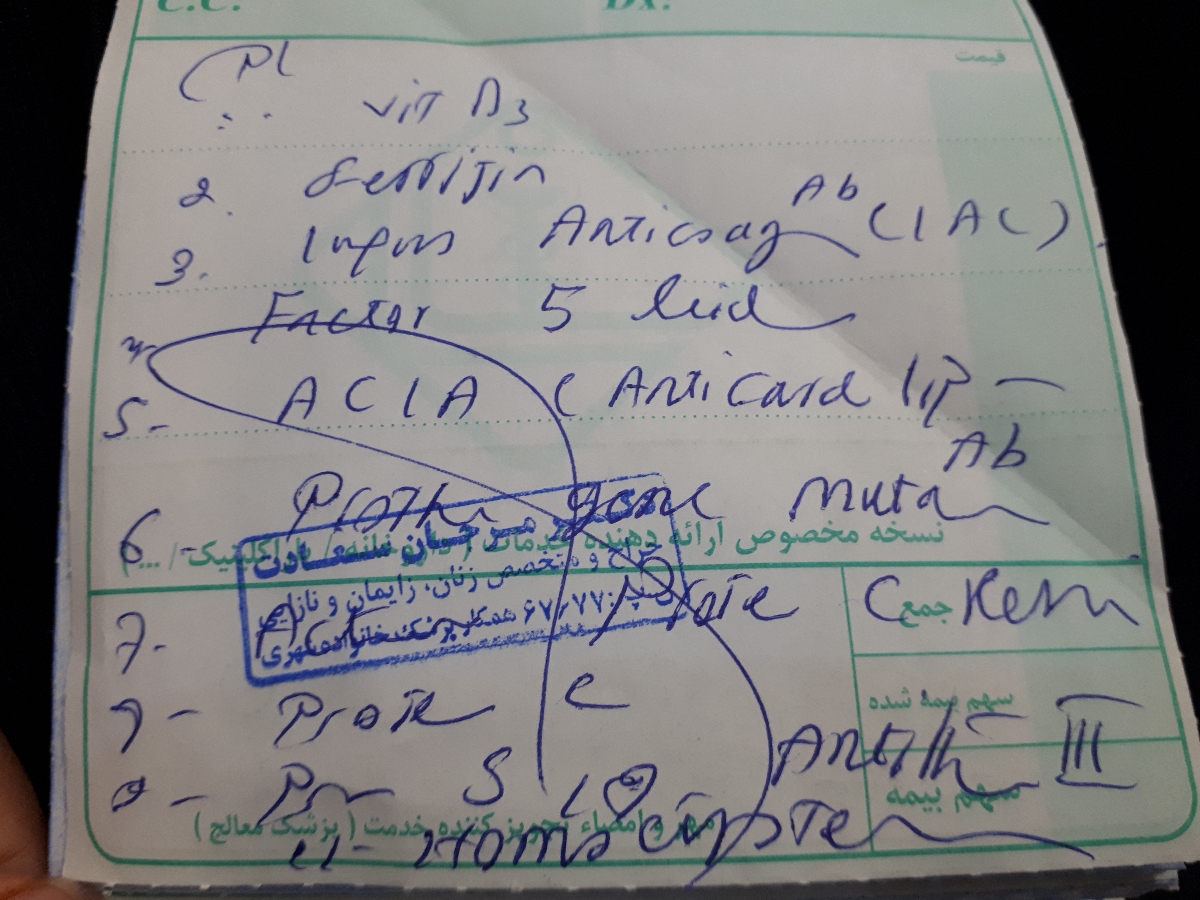 C.C. DX.
قیمت
vit D3
2. Ferritin
3. Lupus Anticoag Ab (LAC)
4- Factor 5 Leid
5- ACLA (Anticard lip- Ab
6- Proth gene muta
نسخه مخصوص ارائه دهنده خدمات
مرجان سعادتی
جراح و متخصص زنان، زایمان و نازایی
همکار پزشک خانواده شهری
7- Prote C Resn
جمع
Prote C
سهم بیمه شده
9- Pr S 10 Antith III
سهم بیمه
مهر و امضاء تجویز کننده خدمت ( پزشک معالج )
11- Homocyste